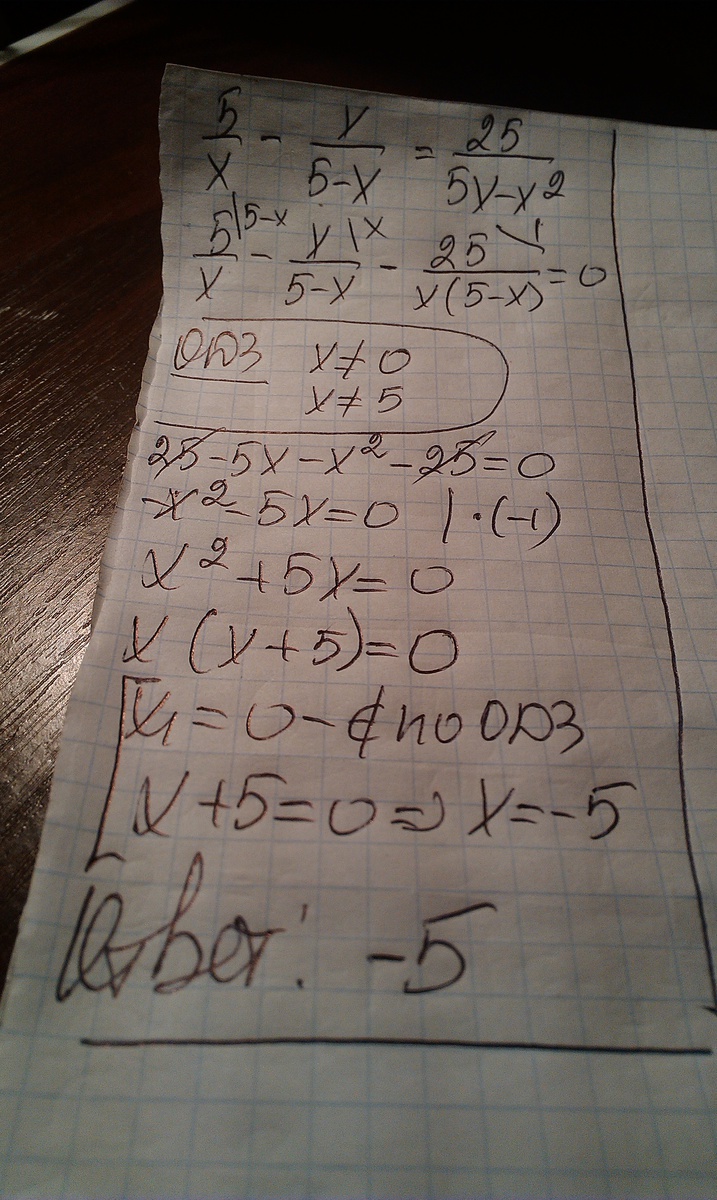 5/x - x/(5-x) = 25/(5x-x²)
5|5-x/x - x|x/(5-x) - 25\1/(x(5-x)) = 0
ОДЗ x≠0
x≠5
25-5x-x²-25=0
-x²-5x=0 |·(-1)
x²+5x=0
x(x+5)=0
x₁=0-∉ по ОДЗ
x+5=0⇒x=-5
Ответ: -5